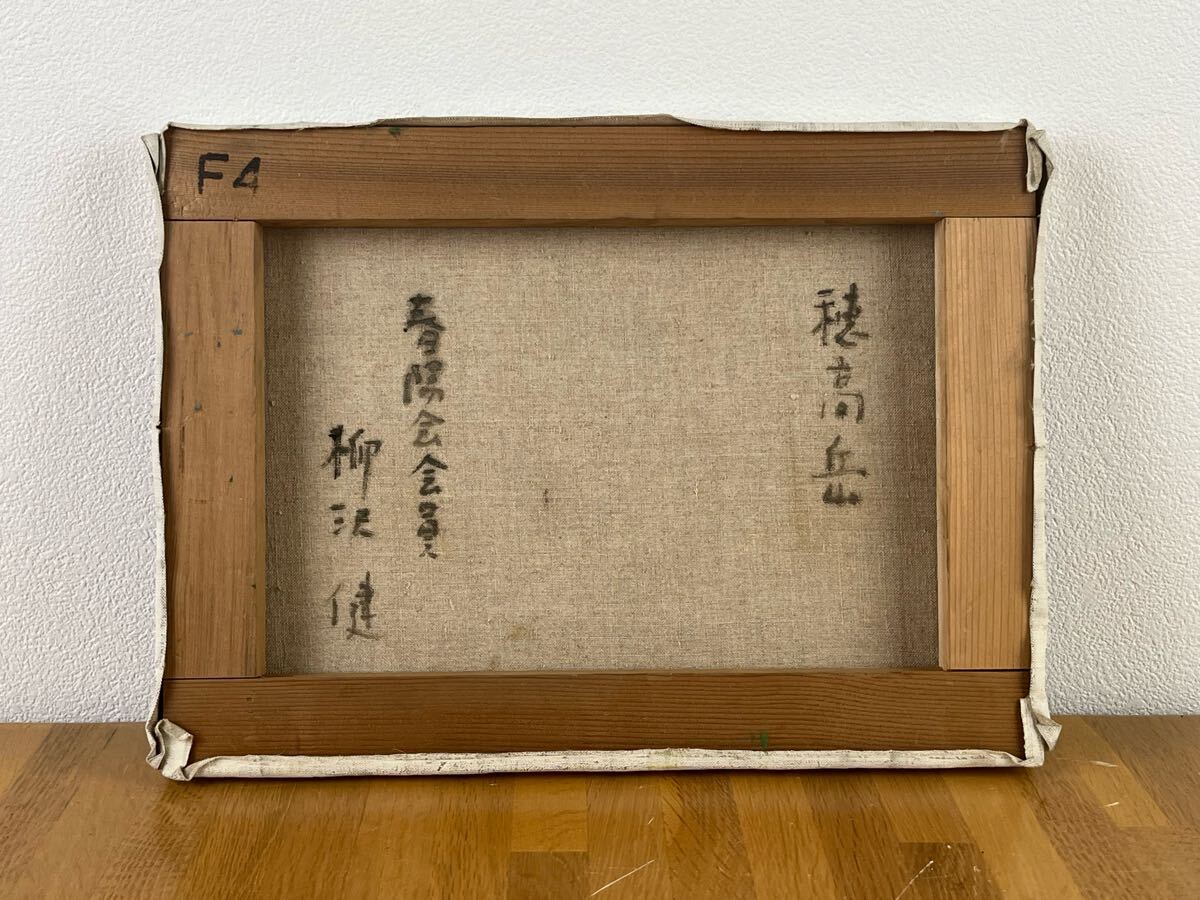 F4
穂高岳
春陽会会員
柳沢健